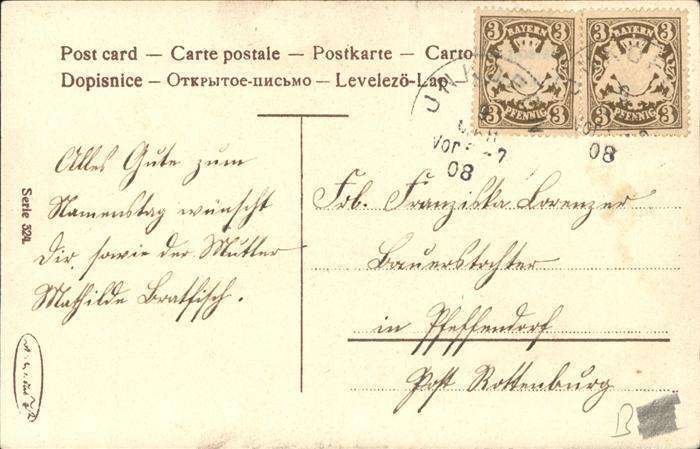 Post card — Carte postale — Postkarte — Carto
Dopisnice — Открытое-письмо — Levelező-Lap
3 BAYERN 3
3 PFENNIG 3
3 BAYERN 3
3 PFENNIG 3
Vor
08
08
Alles Gute zum
Namenstag wünscht
Dir sowie der Mutter
Mathilde Bratfisch.
Serie 324.
Frl. Franziska Lorenzer
Bauerstochter
in Pfeffendorf
Post Rottenburg
B